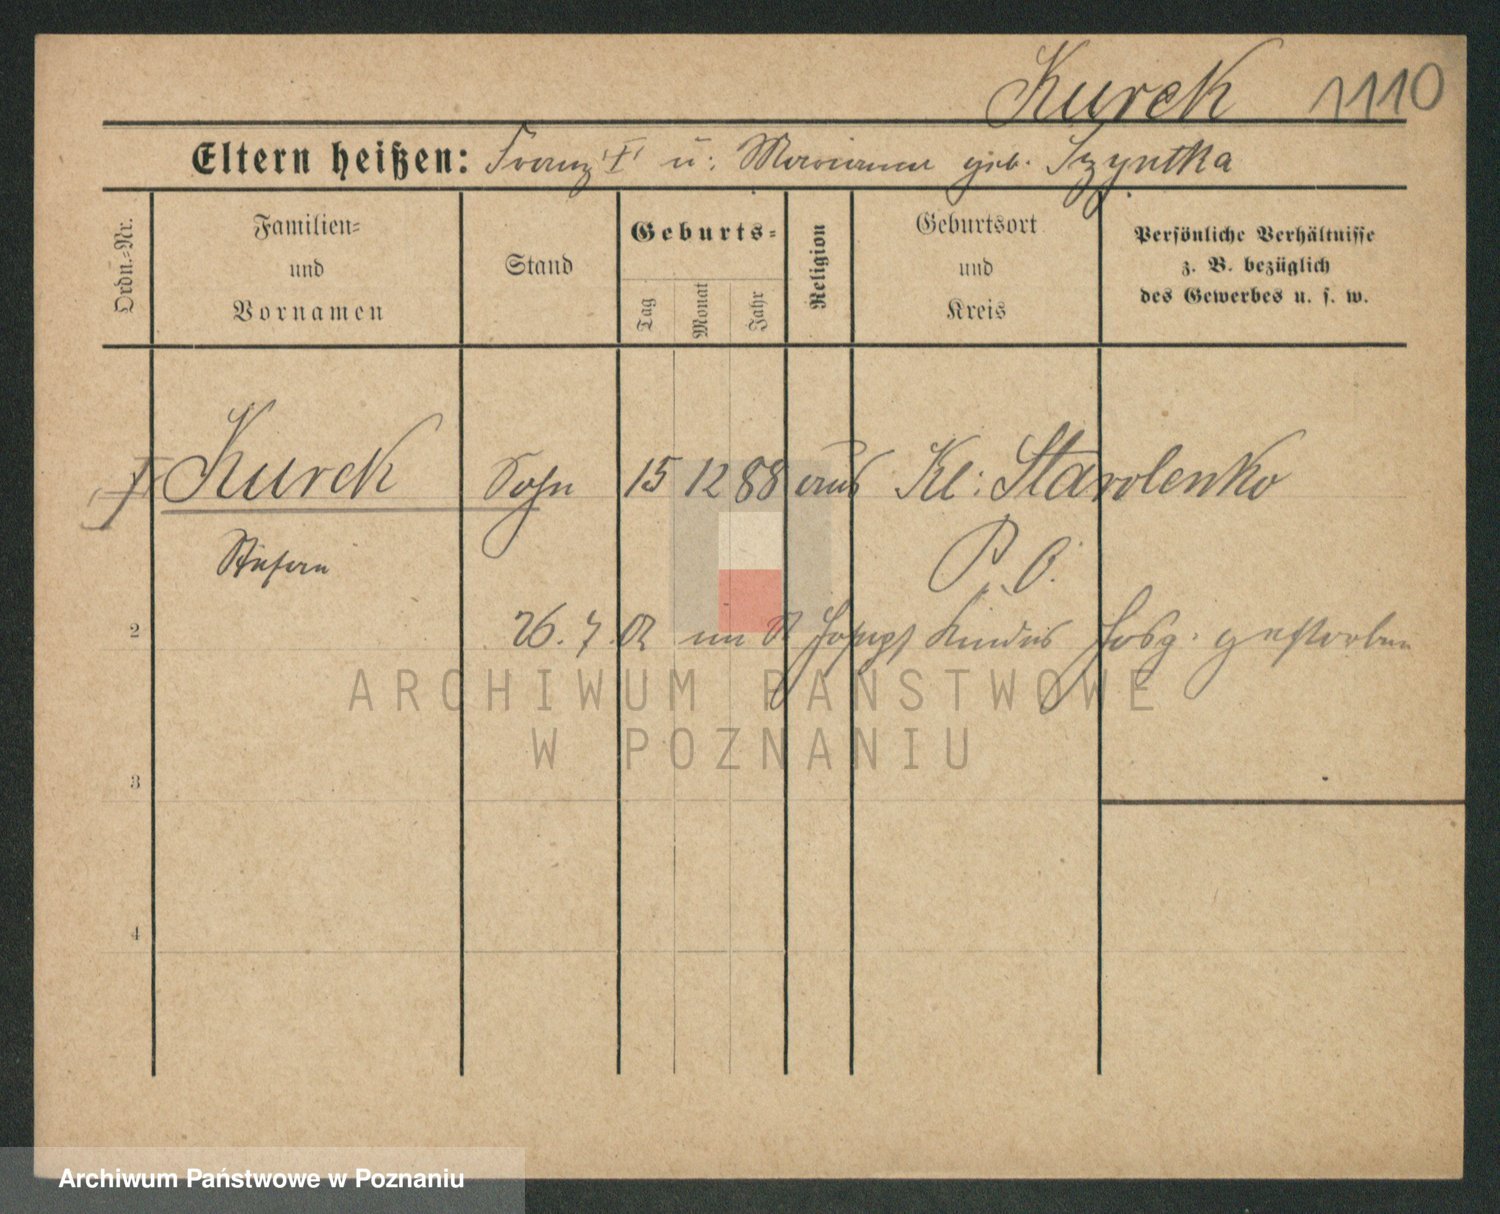 Kurek 1110
Eltern heißen: Franz "†" u: Marianna geb. Szyntka
Ordn.-Nr.
Familien- und Vornamen
Stand
Geburts-
Tag
Monat
Jahr
Religion
Geburtsort und Kreis
Persönliche Verhältnisse z. B. bezüglich des Gewerbes u. s. w.
† Kurek Sohn 15 12 88 aus Kl: Starolenko
Stefan P. O.
2 26. 7. 02 im St Josephs Kinder Hosp: gestorben
ARCHIWUM PAŃSTWOWE
W POZNANIU
3
4
Archiwum Państwowe w Poznaniu